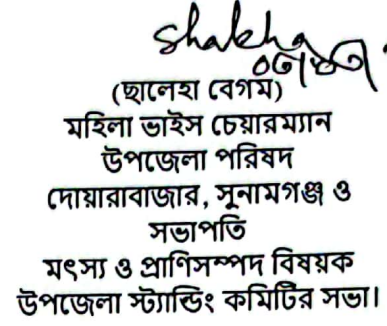 (ছালেহা বেগম)
মহিলা ভাইস চেয়ারম্যান
উপজেলা পরিষদ
দোয়ারাবাজার, সুনামগঞ্জ ও
সভাপতি
মৎস্য ও প্রাণিসম্পদ বিষয়ক
উপজেলা স্ট্যান্ডিং কমিটির সভা।